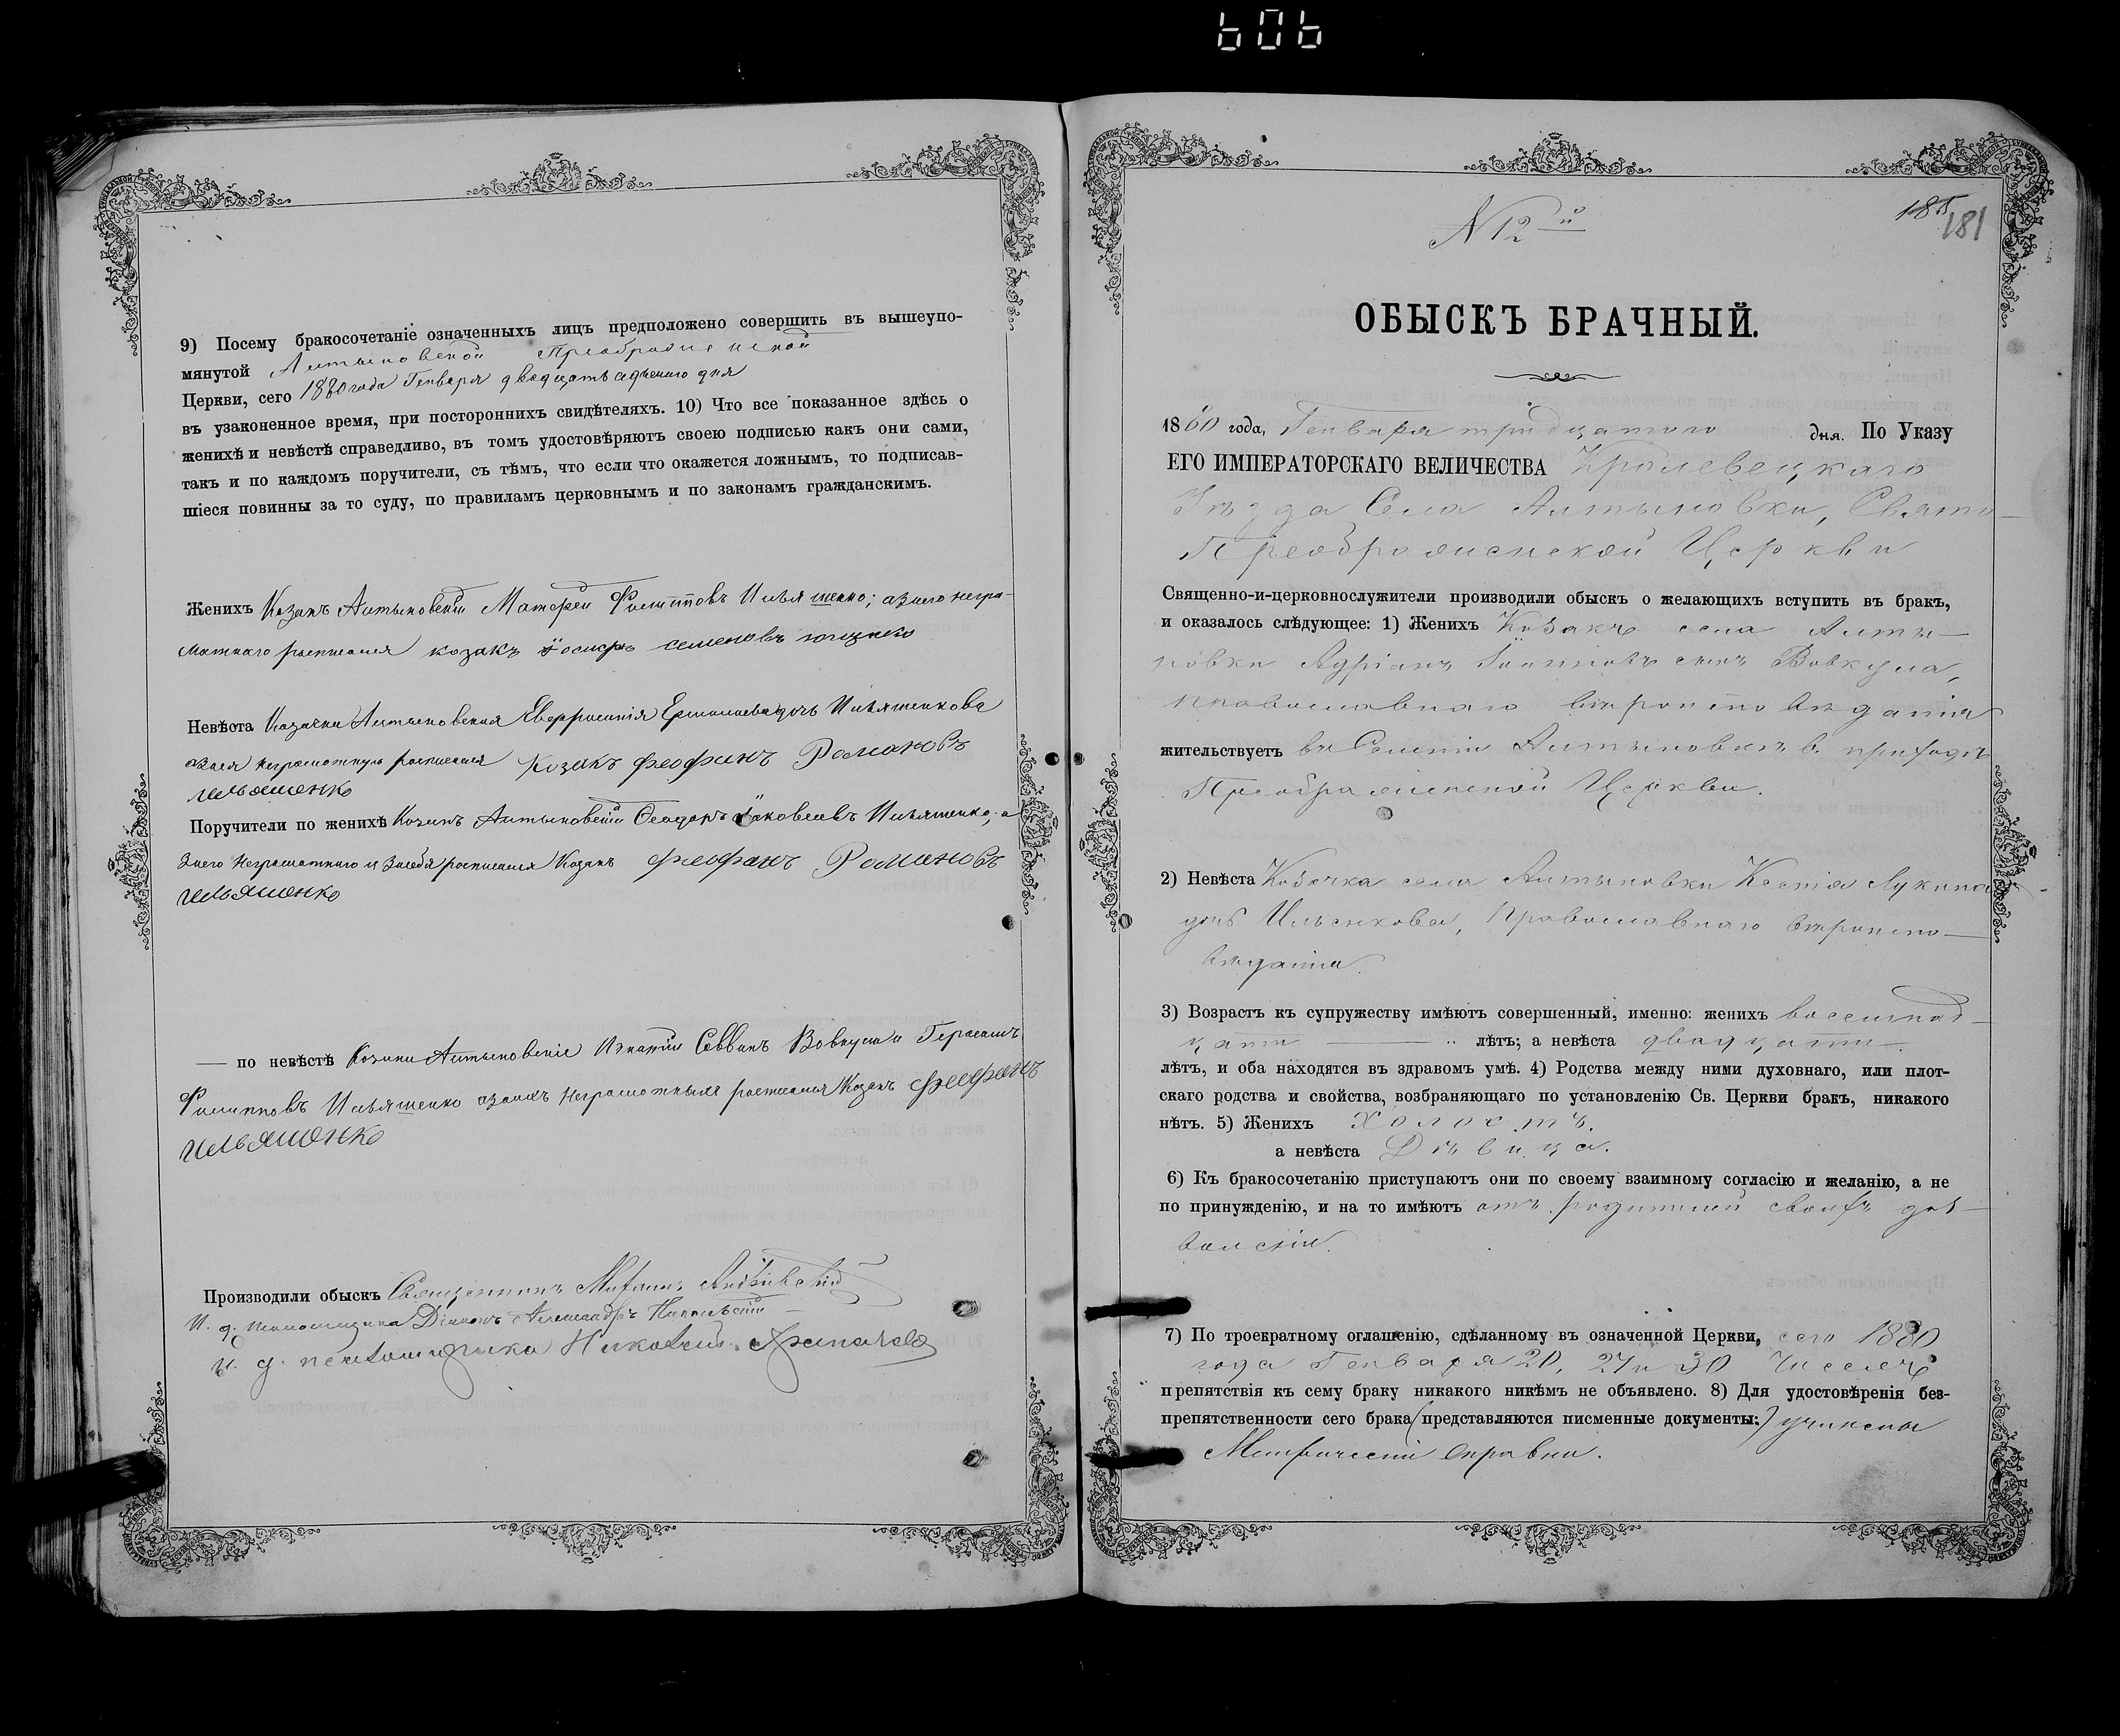 606
9) Посему бракосочетаніе означенныхъ лицъ предположено совершить въ вышеупо-
мянутой Алтыновской Преображенской
Церкви, сего 1880 года Генваря двадцать
въ узаконенное время, при постороннихъ свидѣтеляхъ. 10) Что все показанное здѣсь о
женихѣ и невѣстѣ справедливо, въ томъ удостовѣряютъ своею подписью какъ они сами,
такъ и по каждомъ поручители, съ тѣмъ, что если что окажется ложнымъ, то подписав-
шіеся повинны за то суду, по правиламъ церковнымъ и по законамъ гражданскимъ.
Женихъ Козакъ Алтыновскій Матфей Филипповъ Ильяшенко; а за него негра-
мотнаго росписался козакъ іосифъ семеновъ
Невѣста Козачка Алтыновская Евфросинія дочь Ильяшенкова
а за нея неграмотную росписался козакъ феофанъ Романовъ
ильяшенко
Поручители по женихѣ Козакъ Алтыновскій Ѳеодоръ Яковлевъ Ильяшенко, а
за него неграмотнаго и за себя росписался Козакъ феофанъ Романовъ
ильяшенко
— по невѣстѣ Козаки Алтыновскіе Игнатій Саввинъ Вовкула и Герасимъ
Филипповъ Ильяшенко а за нихъ неграмотныхъ росписался Козакъ феофанъ
ильяшенко
Производили обыскъ Священникъ
И. д. псаломщика Діаконъ Александръ Никольскій
И. д. псаломщика Николай
N 12й
181
ОБЫСКЪ БРАЧНЫЙ.
1880 года, Генваря тридцатаго дня. По Указу
ЕГО ИМПЕРАТОРСКАГО ВЕЛИЧЕСТВА Кролевецкаго
Уѣзда Села Алтыновки, Свято-
Преображенской Церкви
Священно-и-церковнослужители производили обыскъ о желающихъ вступить въ бракъ,
и оказалось слѣдующее: 1) Женихъ Козакъ села Алты-
новки Адріанъ Іоанновъ сынъ Вовкула,
православнаго вѣроисповѣданія
жительствуетъ въ Селеніи Алтыновкѣ въ приходѣ
Преображенской Церкви.
2) Невѣста Козачка села Алтыновки Ксенія Лукина
дочь Ильенкова, Православнаго вѣроиспо-
вѣданія.
3) Возрастъ къ супружеству имѣютъ совершенный, именно: женихъ восемнад-
цати лѣтъ; а невѣста двадцати
лѣтъ, и оба находятся въ здравомъ умѣ. 4) Родства между ними духовнаго, или плот-
скаго родства и свойства, возбраняющаго по установленію Св. Церкви бракъ, никакого
нѣтъ. 5) Женихъ холостъ.
а невѣста Дѣвица.
6) Къ бракосочетанію приступаютъ они по своему взаимному согласію и желанію, а не
по принужденію, и на то имѣютъ отъ родителей своихъ доз-
воленіе.
7) По троекратному оглашенію, сдѣланному въ означенной Церкви, сего 1880
года Генваря 20, 27 и 30 числехъ
препятствія къ сему браку никакого никѣмъ не объявлено. 8) Для удостовѣренія без-
препятственности сего брака (представляются писменные документы:) учинены
Метрическіи справки.